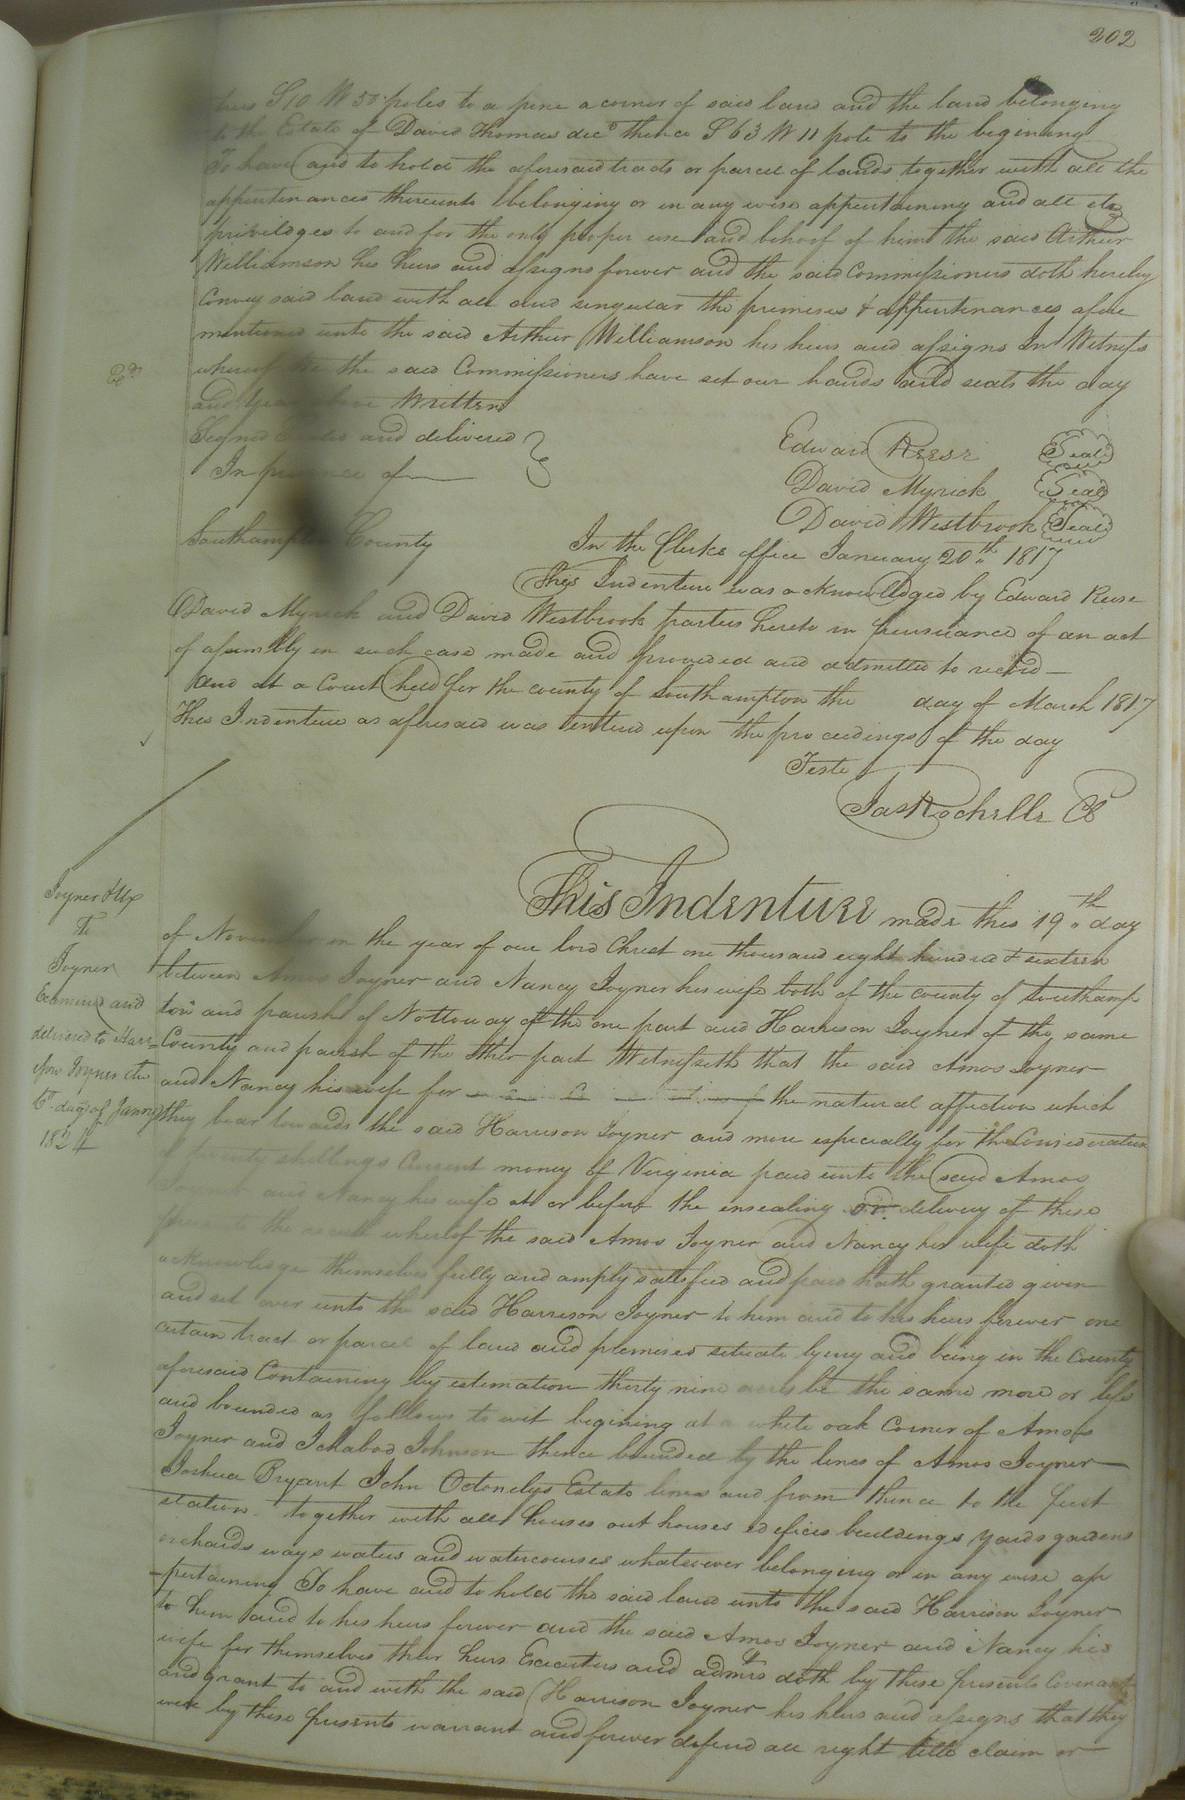 202
thence S 10 W 50 poles to a pine a corner of said land and the land belonging
to the Estate of David Thomas decd thence S 63 W 11 pole to the begining
To have and to hold the aforesaid tracts or parcel of lands together with all the
appurtenances thereunto belonging or in any wise appertaining and all its
priviledges to and for the only proper use and behoof of him the said Arthur
Williamson his heirs and assigns forever and the said Commissioners doth hereby
Convey said land with all and singular the premises & appurtinances afore
mentioned unto the said Arthur Williamson his heirs and assigns In Witness
whereof We the said Commissioners have set our hands and seals the day
and year above Written
Signed Sealed and delivered
In presence of
Edward Reese Seal
David Myrick Seal
David Westbrook Seal
Southampton County
In the Clerks office January 20th 1817
This Indenture was acknowledged by Edward Reese
David Myrick and David Westbrook parties hereto in pursuance of an act
of assembly in such case made and provided and admitted to record
And at a Court held for the county of Southampton the day of March 1817
This Indenture as aforesaid was entered upon the proceedings of the day
Teste
Jas Rochelle CC
Joyner & Ux
To
Joyner
Examined and
delivered to Harri-
son Joyner the
6th day of Janny
1824
This Indenture made this 19th day
of November in the year of our lord Christ one thousand eight hundred & sixteen
between Amos Joyner and Nancy Joyner his wife both of the county of Southamp
ton and parish of Nottoway of the one part and Harrison Joyner of the same
County and parish of the other part Witnesseth that the said Amos Joyner
and Nancy his wife for the natural affection which
they bear towards the said Harrison Joyner and more especially for the Consideration
of twenty shillings Current money of Virginia paid unto the said Amos
Joyner and Nancy his wife at or before the ensealing or delivery of these
presents the receipt whereof the said Amos Joyner and Nancy his wife doth
acknowledge themselves fully and amply satisfied and paid hath granted given
and set over unto the said Harrison Joyner to him and to his heirs forever one
certain tract or parcel of land and premises situate lying and being in the County
aforesaid Containing by estimation thirty nine acres be the same more or less
and bounded as follows to wit begining at a white oak Corner of Amos
Joyner and Ichabod Johnson thence bounded by the lines of Amos Joyner
Joshua Bryant John Octonelys Estate lines and from thence to the first
station together with all houses out houses edefices buildings yards gardens
orchards ways waters and watercourses whatsoever belonging or in any wise ap
pertaining To have and to hold the said land unto the said Harrison Joyner
to him and to his heirs forever and the said Amos Joyner and Nancy his
wife for themselves their heirs Executors and admrs doth by these presents Covenant
and grant to and with the said Harrison Joyner his heirs and assigns that they
will by these presents warrant and forever defend all right title claim or